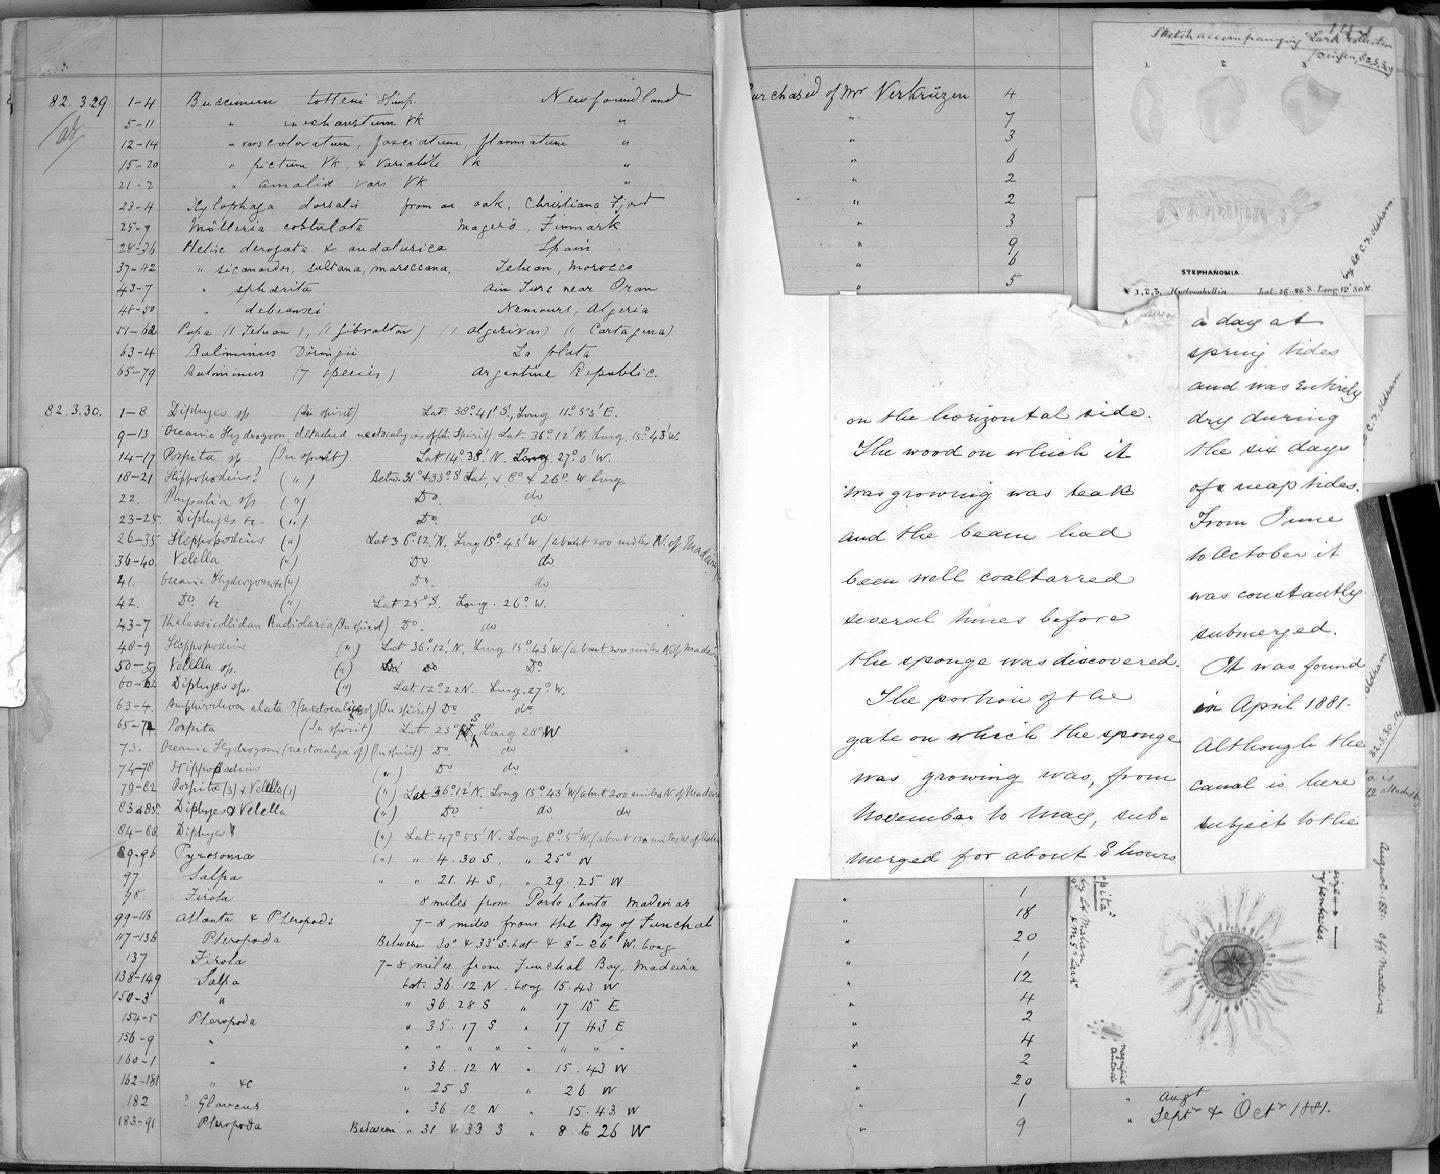 82.3.29 1-4 Buccinum totteni Stimp. Newfoundland
5-11 " inexhaustum VK "
12-14 " vars coloratum, fasciatum, flammatum "
15-20 " pictum VK, & variabile VK "
21-2 " amalia vars VK "
23-4 Xylophaga dorsalis from an oak, Christiana Fjord
25-7 Mölleria costulata Magerö, Finmark
28-36 Helix derogata & andalusica Spain
37-42 " sicanoides, sultana, maroccana, Tetuan, Morocco
43-7 " sphaerita Ain Turc near Oran
48-50 " debeauxi Nemours, Algeria
51-62 Pupa (( Tetuan), (( Gibraltar) (( Algeciras) (( Cartagena)
63-4 Buliminus Döringii La Plata
65-79 Buliminus (7 species) Argentine Republic.
82.3.30. 1-8 Diphyes sp (In spirit) Lat. 38° 41' S, Long 11° 53' E.
9-13 Oceanic Hydrozoon, detached nectocalyces of (In Spirit) Lat. 36° 12' N. Long. 15° 43' W.
14-17 Porpita sp (In spirit) Lat 14° 38' N. Long. 27° 0' W.
18-21 Hippopodius? (") Betw. 31° & 33° S Lat, & 8° & 26° W. Long
22. Physalia sp (") Do do
23-25. Diphyes &c (") Do do
26-35 Hippopodius (") Lat 36° 12' N. Long 15° 43' W. (about 200 miles N. of Madeira)
36-40 Velella (") Do do
41. Oceanic Hydrozoon &c (") Do. do
42. Do. &c (") Lat 25° S. Long. 26° W.
43-7 Thalassicollidan Radiolaria (In spirit) Do. do
48-9 Hippopodius (") Lat 36° 12' N. Long 15° 43' W. (about 200 miles N. of Madeira
50-59 Velella sp. (") Do Do.
60-62 Diphyes sp. (") Lat 12° 22 N. Long. 27° W.
63-4. alata ? (nectocalyces of) (In spirit) Do do
65-72 Porpita (In spirit) Lat. 23° S, Long 28° W
73. Oceanic Hydrozoon (nectocalyx of) (In spirit) Do. do
74-78 Hippopodius (") Do do
79-82 Porpita (3) & Velella (1) (") Lat 36° 12' N. Long 15° 43' W (about 200 miles N. of Madeira
83 & 83a. Diphyes & Velella (") Do do do
84-88 Diphyes (") Lat. 47° 55' N. Long 8° 5' W. (about 120 miles W. of
89-96 Pyrosoma (") " 4. 30 S, " 25° W
97 Salpa " " 21. 4 S, " 29. 25 W
98 Firola 8 miles from Porto Santo Madeiras
99-116 Atlanta & Pteropods 7-8 miles from the Bay of Funchal
117-136 Pteropoda Between 30° & 33° S. Lat & 8°-26° W. Long
137 Firola 7-8 miles from Funchal Bay, Madeira
138-149 Salpa Lat. 36. 12 N. Long 15. 43 W
150-3 " " 36. 28 S " 17 15 E
154-5 Pteropoda " 35. 17 S " 17 43 E
156-9 " " " " " " " "
160-1 " " 36. 12 N " 15. 43 W
162-181 " &c " 25 S " 26 W
182 ? Glaucus " 36 12 N " 15. 43 W
183-91 Pteropoda Between " 31 & 33 S " 8 to 26 W
Purchased of Mr Verkrüzen 4
" 7
" 3
" 6
" 2
" 2
" 3
" 9
" 6
" 5
Sketch accompanying "Lark" collection
1 2 3
STEPHANOMIA
1, 2, 3, Hydrophyllia. Lat. 36.28 S. Long 17° 30 E.
by Lt C.F. Oldham
C.F. Oldham
on the horizontal side.
The wood on which it
was growing was teak
and the beam had
been well coaltarred
several times before
the sponge was discovered.
The portion of the
gate on which the sponge
was growing was, from
November to May, sub=
merged for about 8 hours
a day at
spring tides
and was entirely
dry during
the six days
of neap tides.
From June
to October it
was constantly
submerged.
It was found
in April 1881.
Although the
canal is here
subject to the
Oldham
82.3.30.
August. 1881. Off Madeira.
tentacles.
"Porpita"
by Lt Oldham
H.M.S. "Lark"
magnified
tentacle
" 1
" 18
" 20
" 1
" 12
" 4
" 2
" 4
" 2
" 20
" 1 " Augt
" 9 " Septr & Octr 1881.